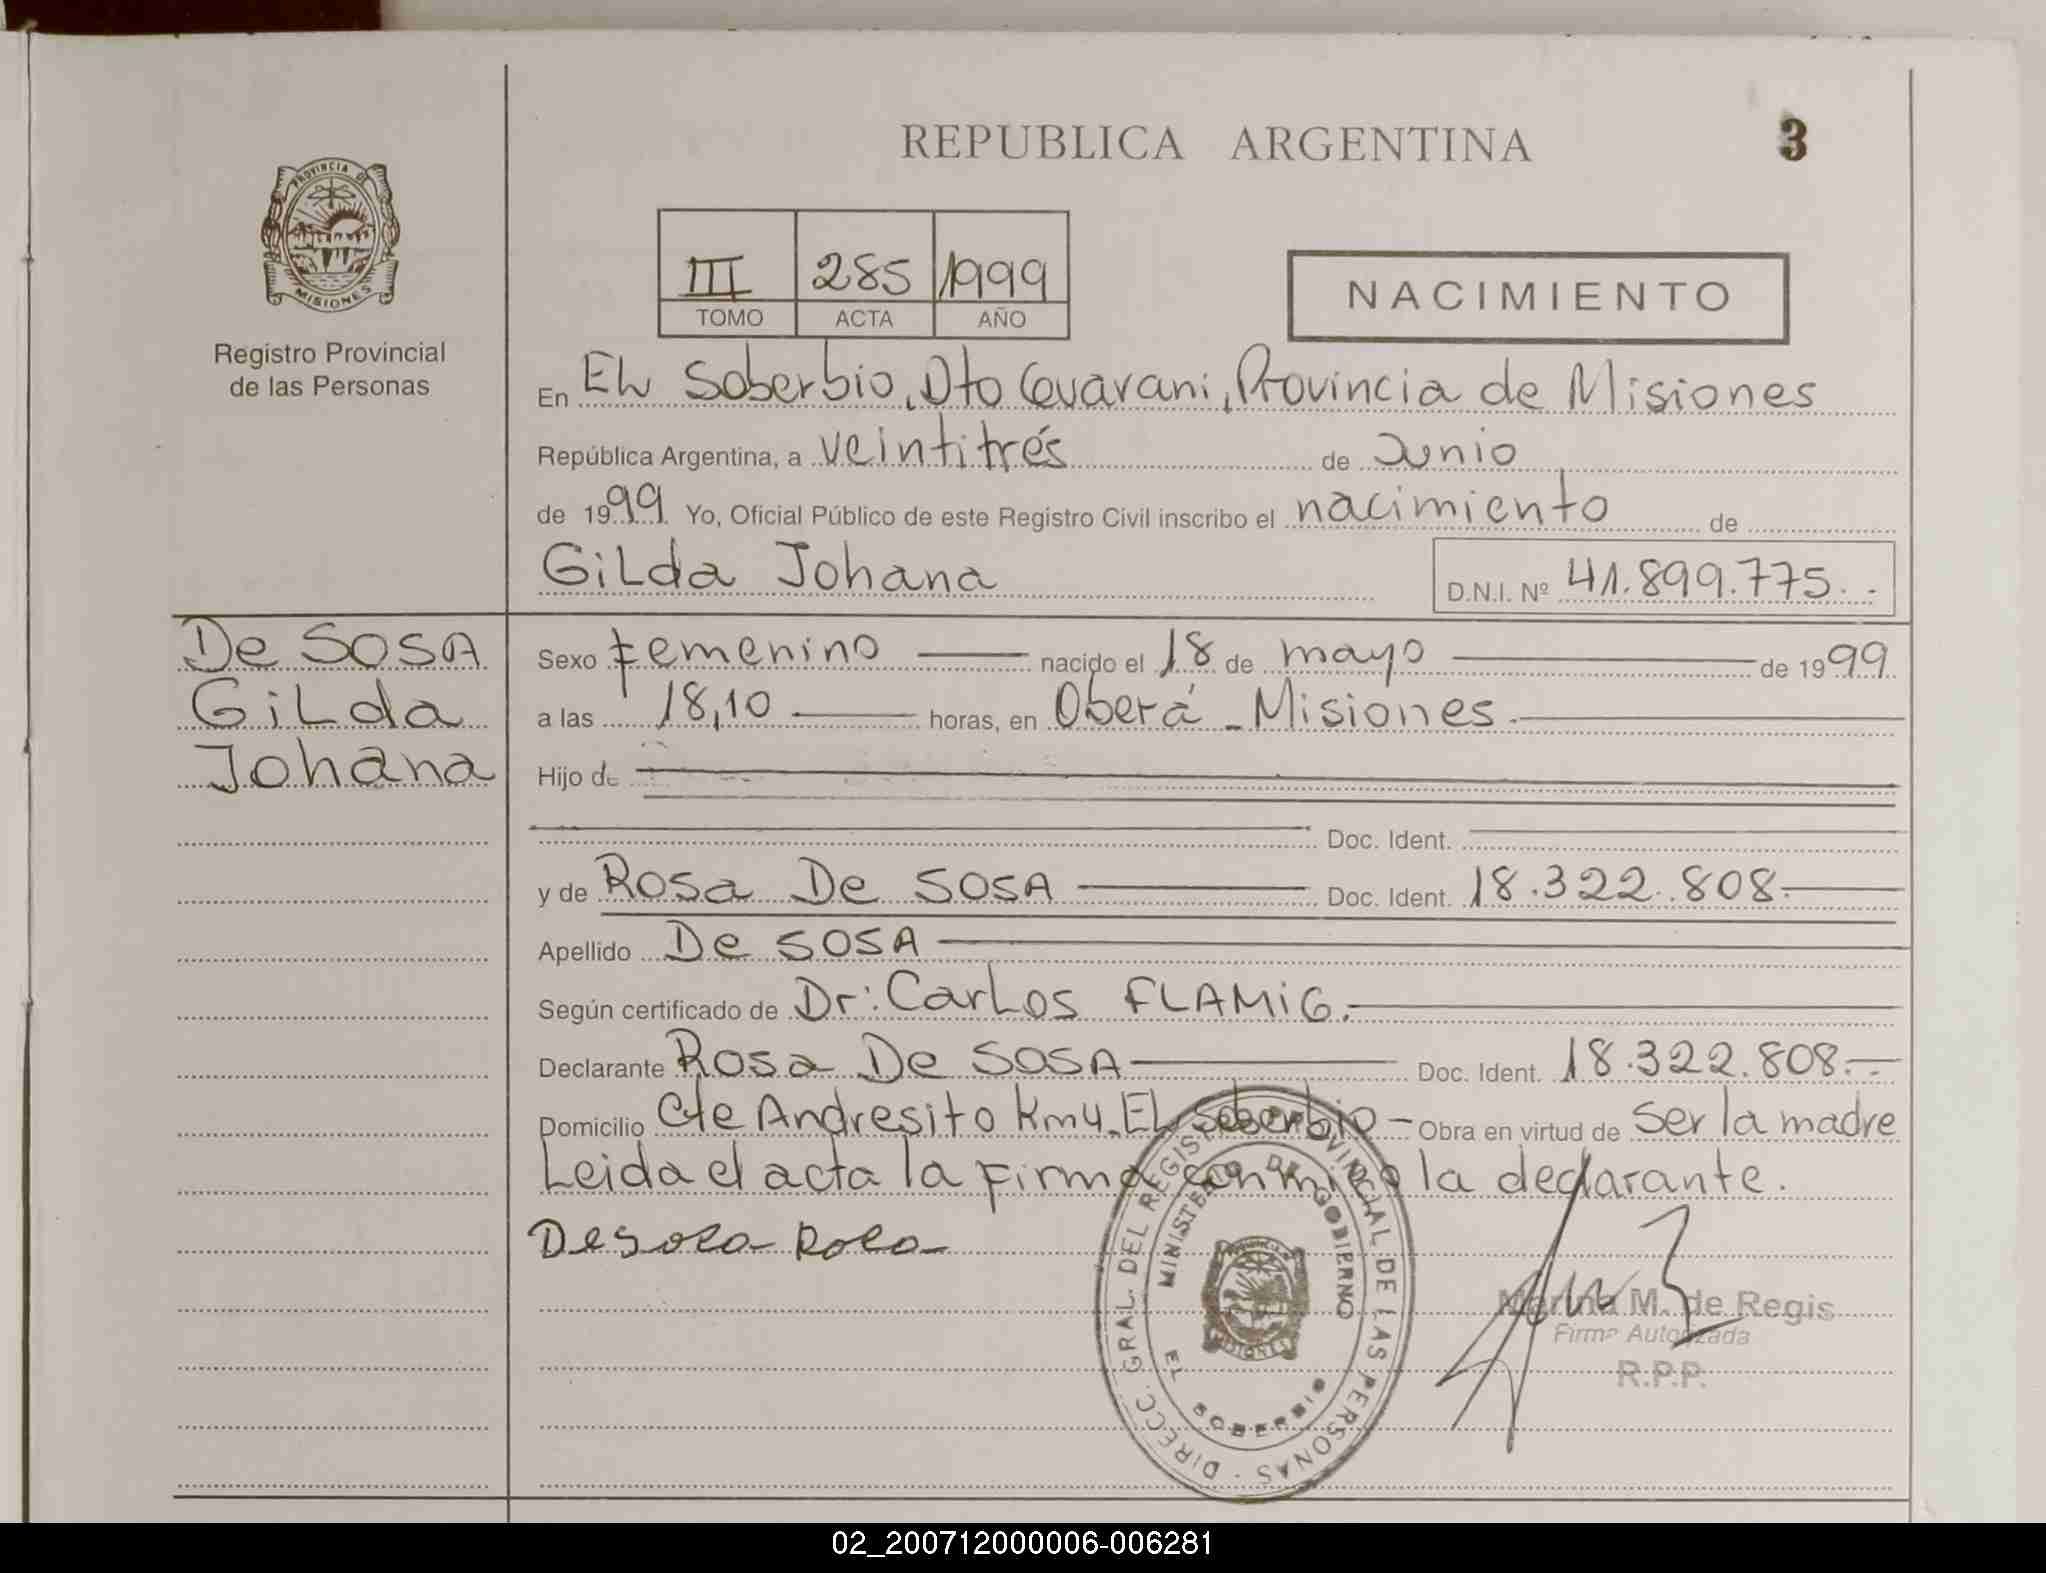 REPUBLICA ARGENTINA
3
PROVINCIA DE
MISIONES
Registro Provincial
de las Personas
III 285 1999
TOMO ACTA AÑO
NACIMIENTO
En EL Soberbio, Dto Guarani, Provincia de Misiones
República Argentina, a veintitrés de Junio
de 1999 Yo, Oficial Público de este Registro Civil inscribo el nacimiento de
GiLda Johana D.N.I. Nº 41.899.775.-
De SOSA
GiLda
Johana
Sexo femenino nacido el 18 de mayo de 1999
a las 18,10 horas, en Oberá - Misiones.
Hijo de
Doc. Ident.
y de Rosa De SOSA Doc. Ident. 18.322.808.
Apellido De SOSA
Según certificado de Dr: CarLos FLAMiG.
Declarante Rosa De SOSA Doc. Ident. 18.322.808.-
Domicilio Cte Andresito Km4. EL Soberbio - Obra en virtud de Ser la madre
Leida el acta la firma conmigo la declarante.
De Sosa Rosa
DIRECC. GRAL. DEL REGISTRO PROVINCIAL DE LAS PERSONAS
MINISTERIO DE GOBIERNO
EL SOBERBIO
MISIONES
Marina M. de Regis
Firma Autorizada
R.P.P.
02_200712000006-006281